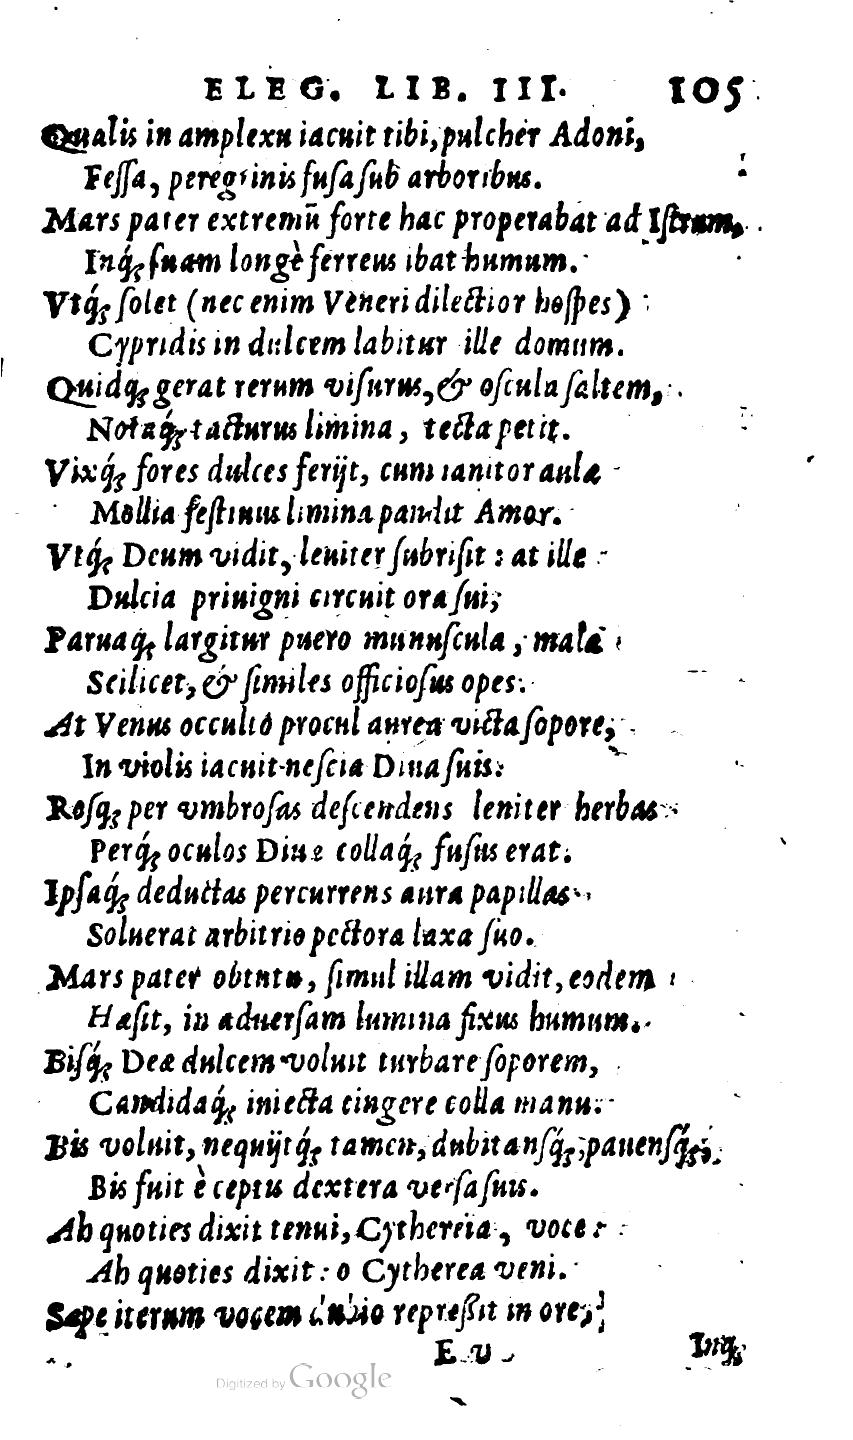 ELEG. LIB. III. 105
Qualis in amplexu iacuit tibi, pulcher Adoni,
Fessa, peregrinis fusa sub arboribus.
Mars pater extremũ forte hac properabat ad Istrum,
Inq́; suam longè ferreus ibat humum.
Vtq́; solet (nec enim Veneri dilectior hospes)
Cypridis in dulcem labitur ille domum.
Quidq; gerat rerum visurus, & oscula saltem,
Notaq́; tacturus limina, tecta petit.
Vixq́; fores dulces ferijt, cum ianitor aulæ
Mollia festinus limina pandit Amor.
Vtq́; Deum vidit, leuiter subrisit: at ille
Dulcia priuigni circuit ora sui;
Paruaq́; largitur puero munuscula, mala
Scilicet, & similes officiosus opes.
At Venus occulto procul aurea victa sopore,
In violis iacuit nescia Diua suis.
Rosq; per vmbrosas descendens leniter herbas
Perq́; oculos Diuæ collaq́; fusus erat.
Ipsaq́; deductas percurrens aura papillas
Soluerat arbitrio pectora laxa suo.
Mars pater obtutu, simul illam vidit, eodem
Hæsit, in aduersam lumina fixus humum.
Bisq́; Deæ dulcem voluit turbare soporem,
Candidaq́; iniecta cingere colla manu.
Bis voluit, nequijtq́; tamen, dubitansq́;, pauensq́;,
Bis fuit è ceptis dextera versa suis.
Ah quoties dixit tenui, Cythereia, voce:
Ah quoties dixit: o Cytherea veni.
Sæpe iterum vocem dubio repressit in ore,
E v Inq́;
Digitized by Google